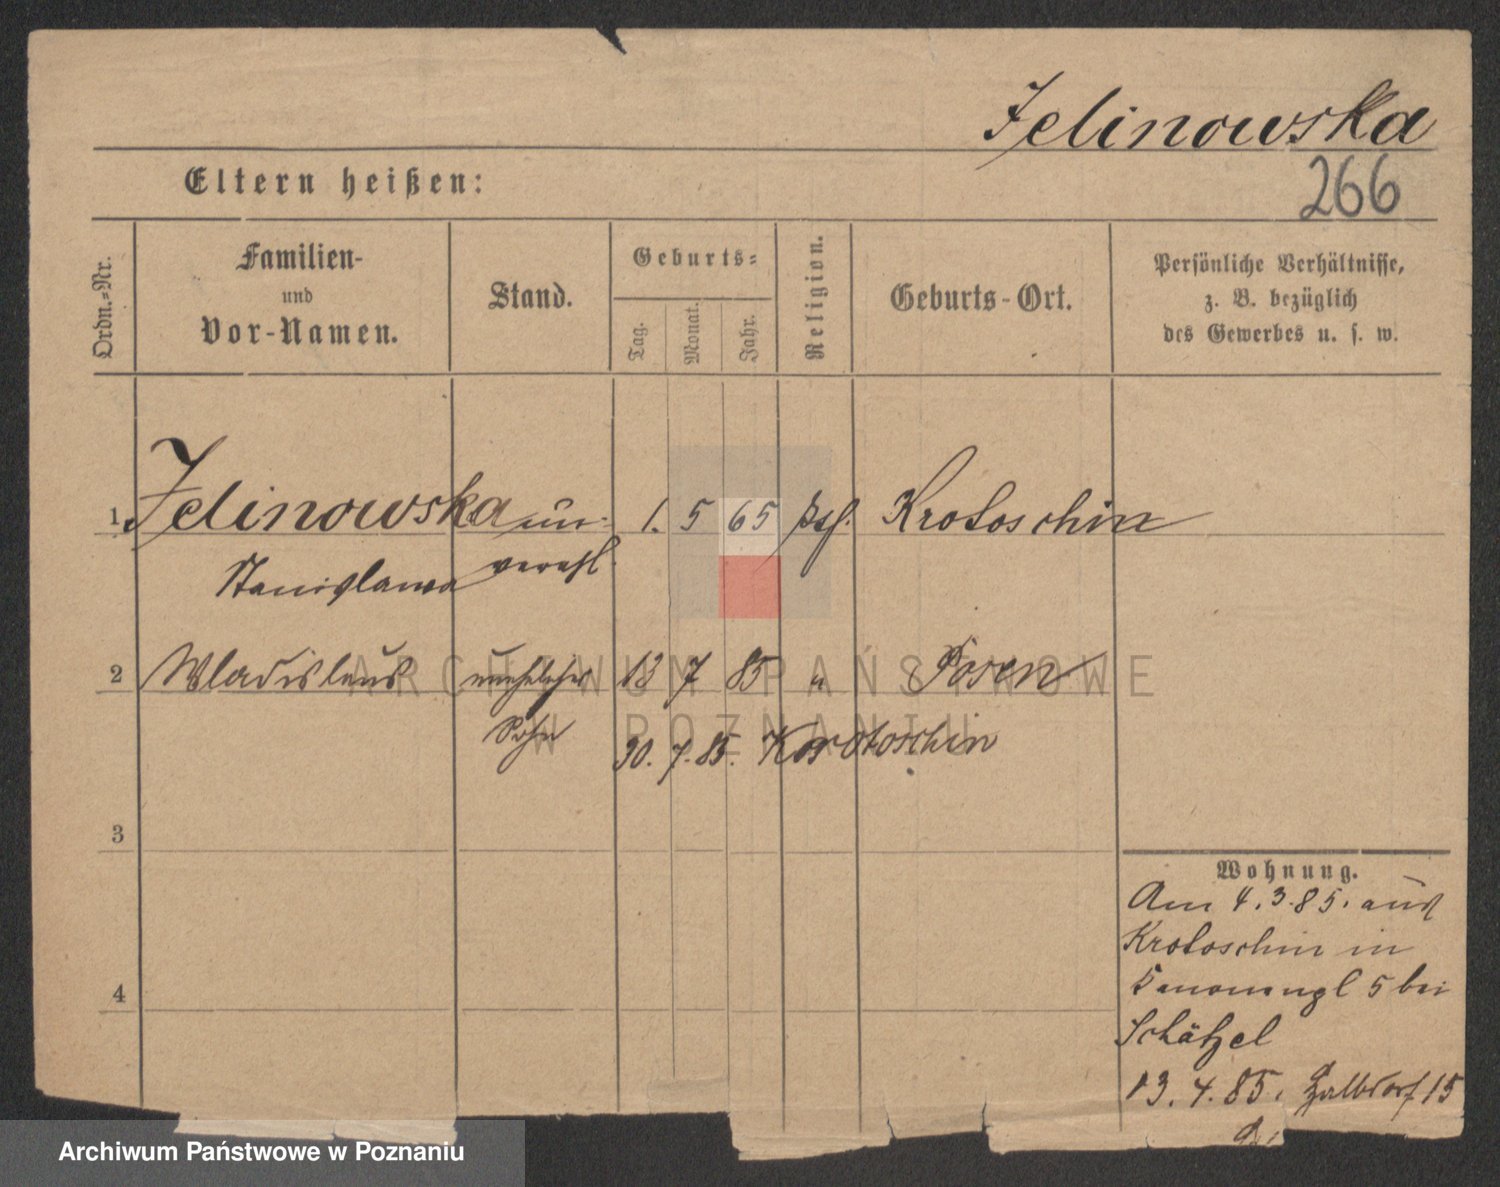 Jelinowska
266
Eltern heißen:
Ordn.=Nr.
Familien-
und
Vor-Namen.
Stand.
Geburts=
Tag.
Monat.
Jahr.
Religion.
Geburts-Ort.
Persönliche Verhältnisse,
z. B. bezüglich
des Gewerbes u. s. w.
1 Jelinowska un- 1. 5 65 Krotoschin
Stanislawa verehl.
2 Wladislaus unehelicher 13 7 85 " Posen
Sohn 30. 7. 85. Krotoschin
3
4
Wohnung.
Am 4.3.85. aus
Krotoschin in
5 bei
Schätzel
13. 4. 85. Halbdorf 15
ARCHIWUM PAŃSTWOWE
W POZNANIU
Archiwum Państwowe w Poznaniu